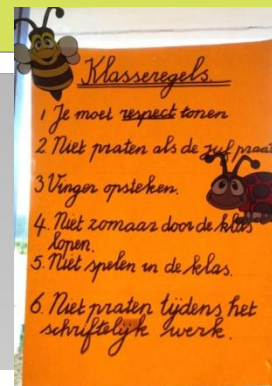 Klasseregels.
1 Je moet respect tonen
2. Niet praten als de juf praat
3 Vinger opsteken.
4. Niet zomaar door de klas
lopen.
5. Niet spelen in de klas.
6. Niet praten tijdens het
schriftelijk werk.